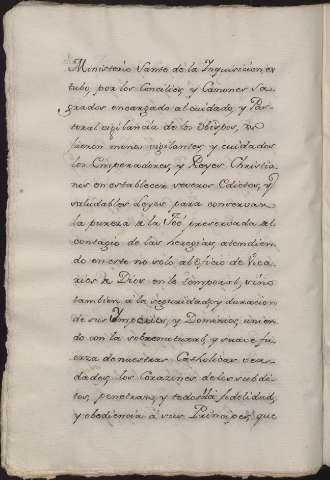 Ministerio Santo de la Inquisicion es
tubo por los Concilios y Canones Sa
grados encargado al cuidado, y Pas
toral vigilancia de los Obispos, no
fueron menos vigilantes, y cuidados
los Emperadores, y Reyes Christia
nos en establecer severos Edictos, y
saludables Leyes para conservar
la pureza a la Feé preservada al
contagio de las heregias, atendien
do en este no solo al oficio de Vica
rios de Dios en lo temporal, sino
tambien a la seguridad, y duracion
de sus Imperios, y Dominios, unien
do con la sobrenatural, y suave fu
erza de nuestras Catholicas ver
dades los Corazones de los subdi
tos, penetran, y todos la fidelidad,
y obediencia á sus Principes; que